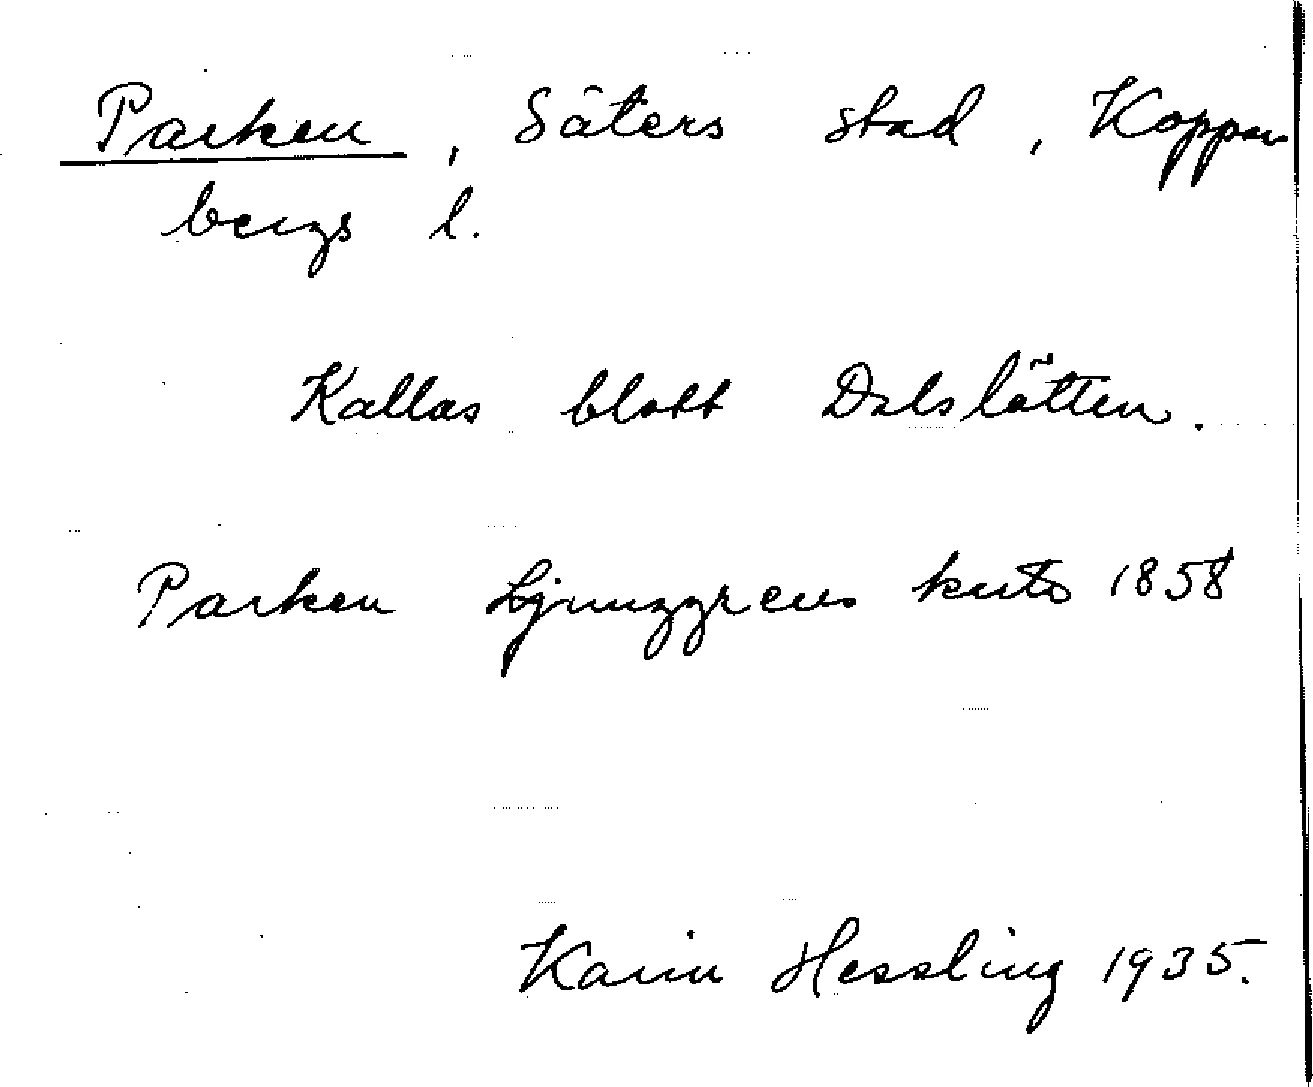 Parken, Säters stad, Koppar
bergs l.
Kallas blott Dalslätten.
Parken Ljunggrens karta 1858
Karin Hessling 1935.